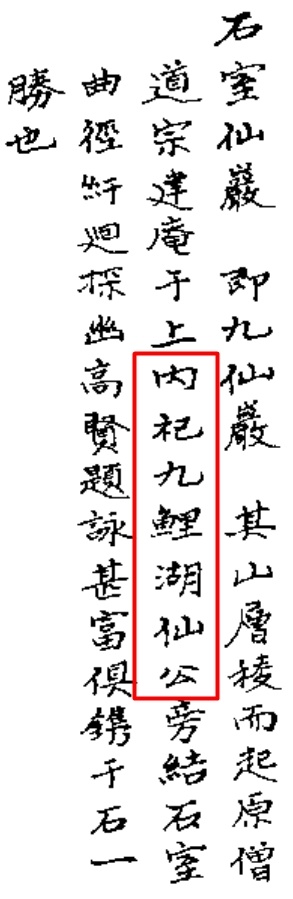 石室仙巖　即九仙巖　其山層稜而起原僧
道宗建庵于上內祀九鯉湖仙公旁結石室
曲徑紆迴探幽高賢題詠甚富俱鐫于石一
勝也